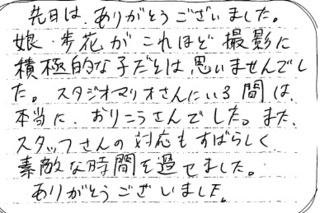 先日は、ありがとうございました。
娘・歩花がこれほど撮影に
積極的な子だとは思いませんでし
た。スタジオマリオさんにいる間は、
本当に、おりこうさんでした。また、
スタッフさんの対応もすばらしく
素敵な時間を過せました。
ありがとうございました。